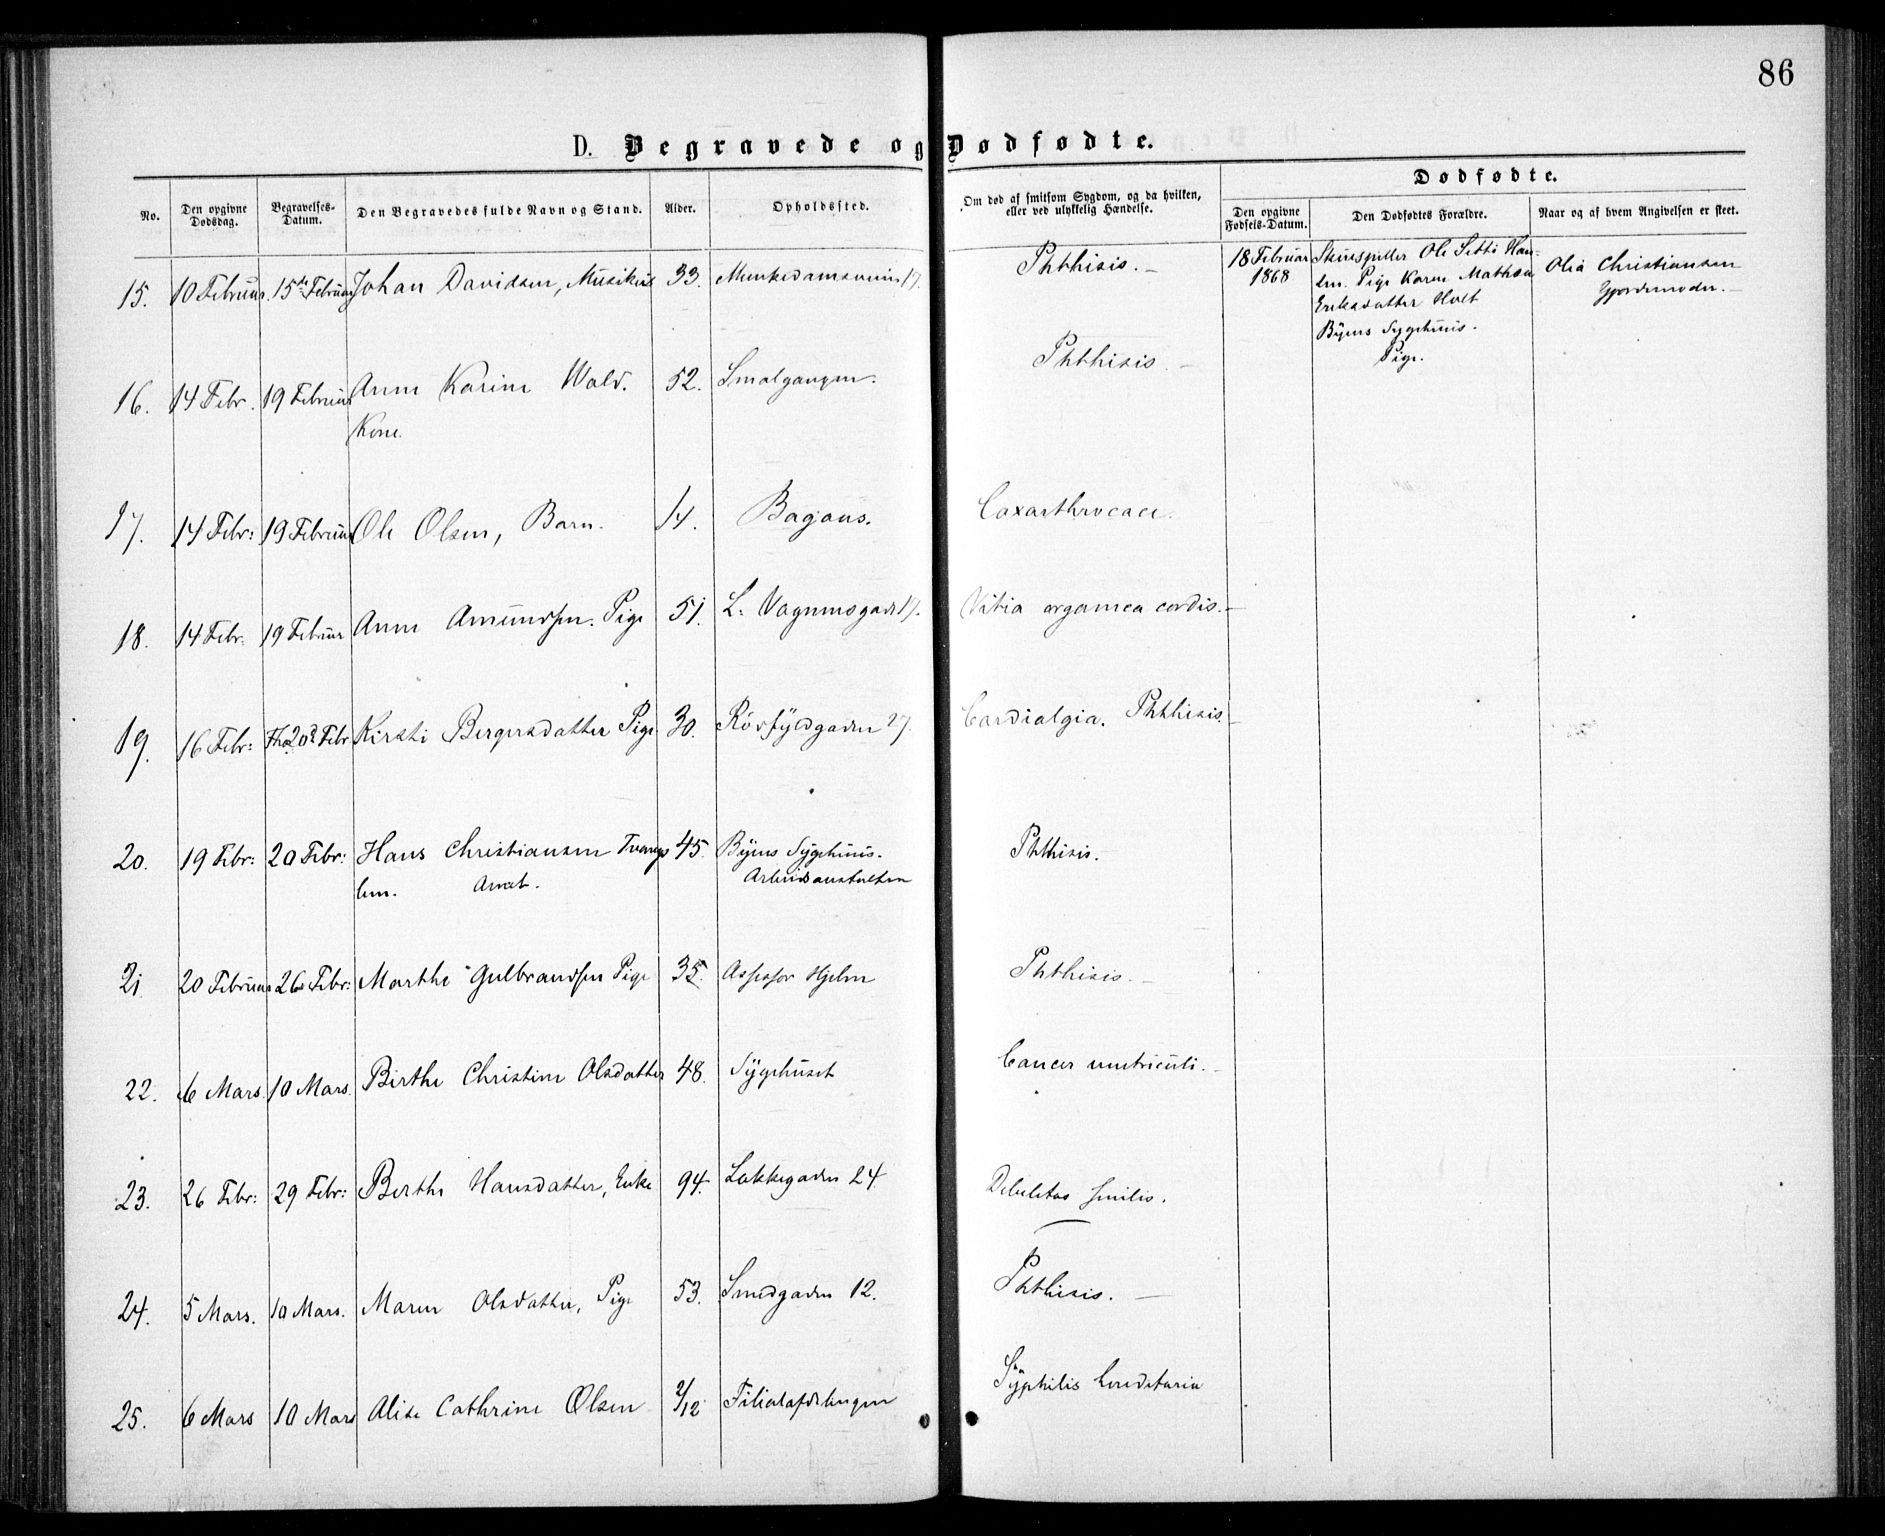 86
D. Begravede og Dødfødte.
No. Den opgivne Dødsdag. Begravelses-Datum. Den Begravedes fulde Navn og Stand. Alder. Opholdssted. Om død af smitsom Sygdom, og da hvilken, eller ved ulykkelig Hændelse. Dødfødte.
Den opgivne Fødsels-Datum. Den Dødfødtes Forældre. Naar og af hvem Angivelsen er skeet.
15. 10 Februar 15de Februar Johan Davidsen, Musikus 33. Munkedamsveien 17. Phthisis.
18 Februar 1868
Skuespiller Ole Han-
sen. Pige Karen Mathea
Eriksdatter Holt
Byens Sygehuus.
Pige.
Olia Christiansen
Gjordemoder.
16. 14 Febr. 19 Februar Anne Karine Wold. 52. Smalgangen. Phthisis.
Kone.
17. 14 Febr: 19 Februar Ole Olsen, Barn. 14. Bagaas. Coxarthrocace.
18. 14 Febr. 19 Februar Anne Amundsen. Pige 51. L. Vognmsgade 17. Vitia organica cordis.
19. 16 Febr: 20de Febr Kirsti Bergersdatter Pige 30. Rødfyldgaden 27. Cardialgia. Phthisis.
20. 19 Febr: 20 Febr: Hans Christiansen Tvengs- 45. Byens Sygehuus. Phthisis.
len. Arrest. Arbeidsanstalten
21 20 Februar 26 Febr: Marthe Gulbrandsen Pige 35. Assessor Hjelm Phthisis.
22. 6 Mars. 10 Mars. Birthe Christine Olsdatter 48. Sygehuset Cancer ventriculi.
23. 26 Febr: 29 Febr: Berthe Hansdatter, Enke 94. Lakkegaden 24 Debilitas senilis.
24. 5 Mars. 10 Mars. Maren Olsdatter, Pige 53. Smedgaden 12. Phthisis.
25. 6 Mars 10 Mars Alise Cathrine Olsen 2/12 Filialafdelingen Syphilis hereditaria